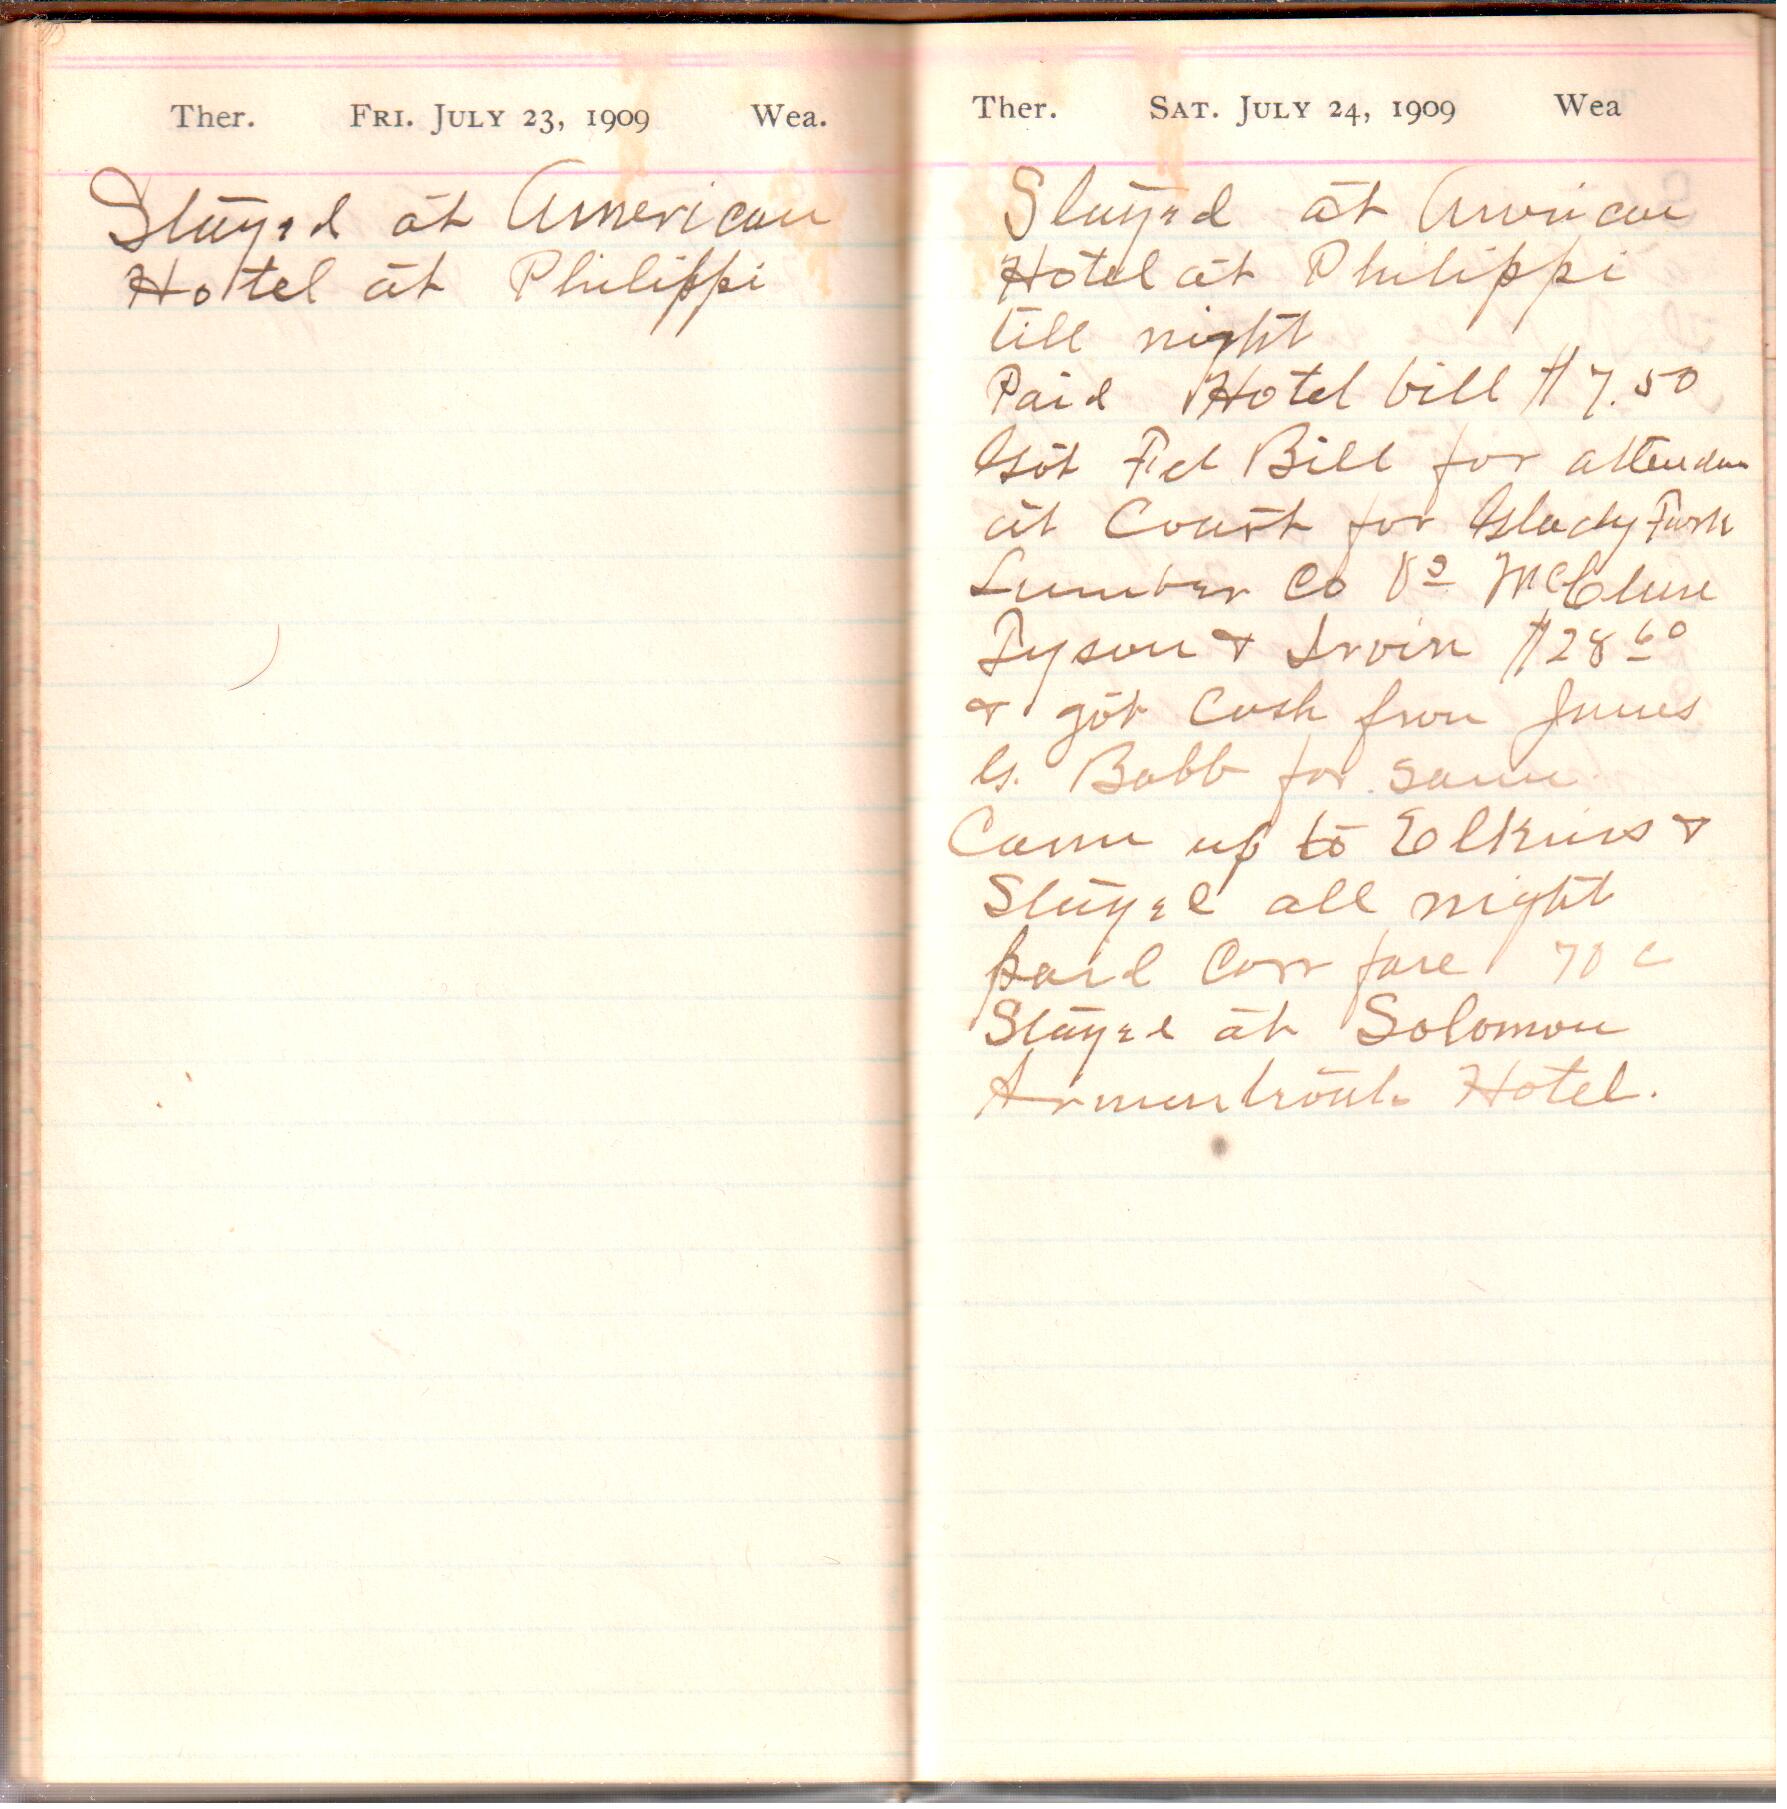 Ther. FRI. JULY 23, 1909 Wea.
Stayed at American
Hotel at Philippi
Ther. SAT. JULY 24, 1909 Wea
Stayed at American
Hotel at Philippi
till night
Paid Hotel bill $7.50
Got Bill for
at Court for Glady Fork
Lumber Co Vs McClure
Tyson & Irvin $28 60
& got Cash from James
G. Bobb for same
Came up to Elkins &
Stayed all night
paid Carr fare 70 c
Stayed at Solomon
Armentrouts Hotel.